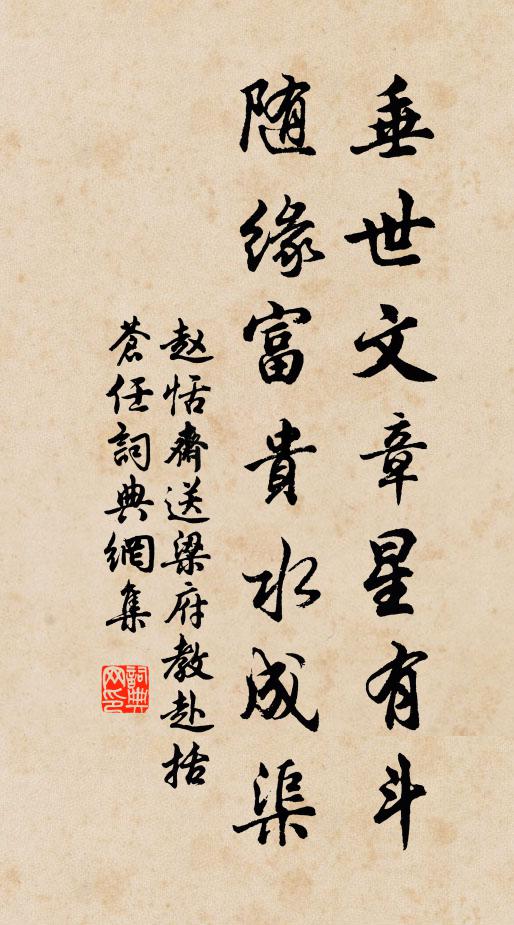 垂世文章星有斗
随缘富貴水成渠
赵恬齋送梁府教赴括
蒼任詞典網集
詞典网印